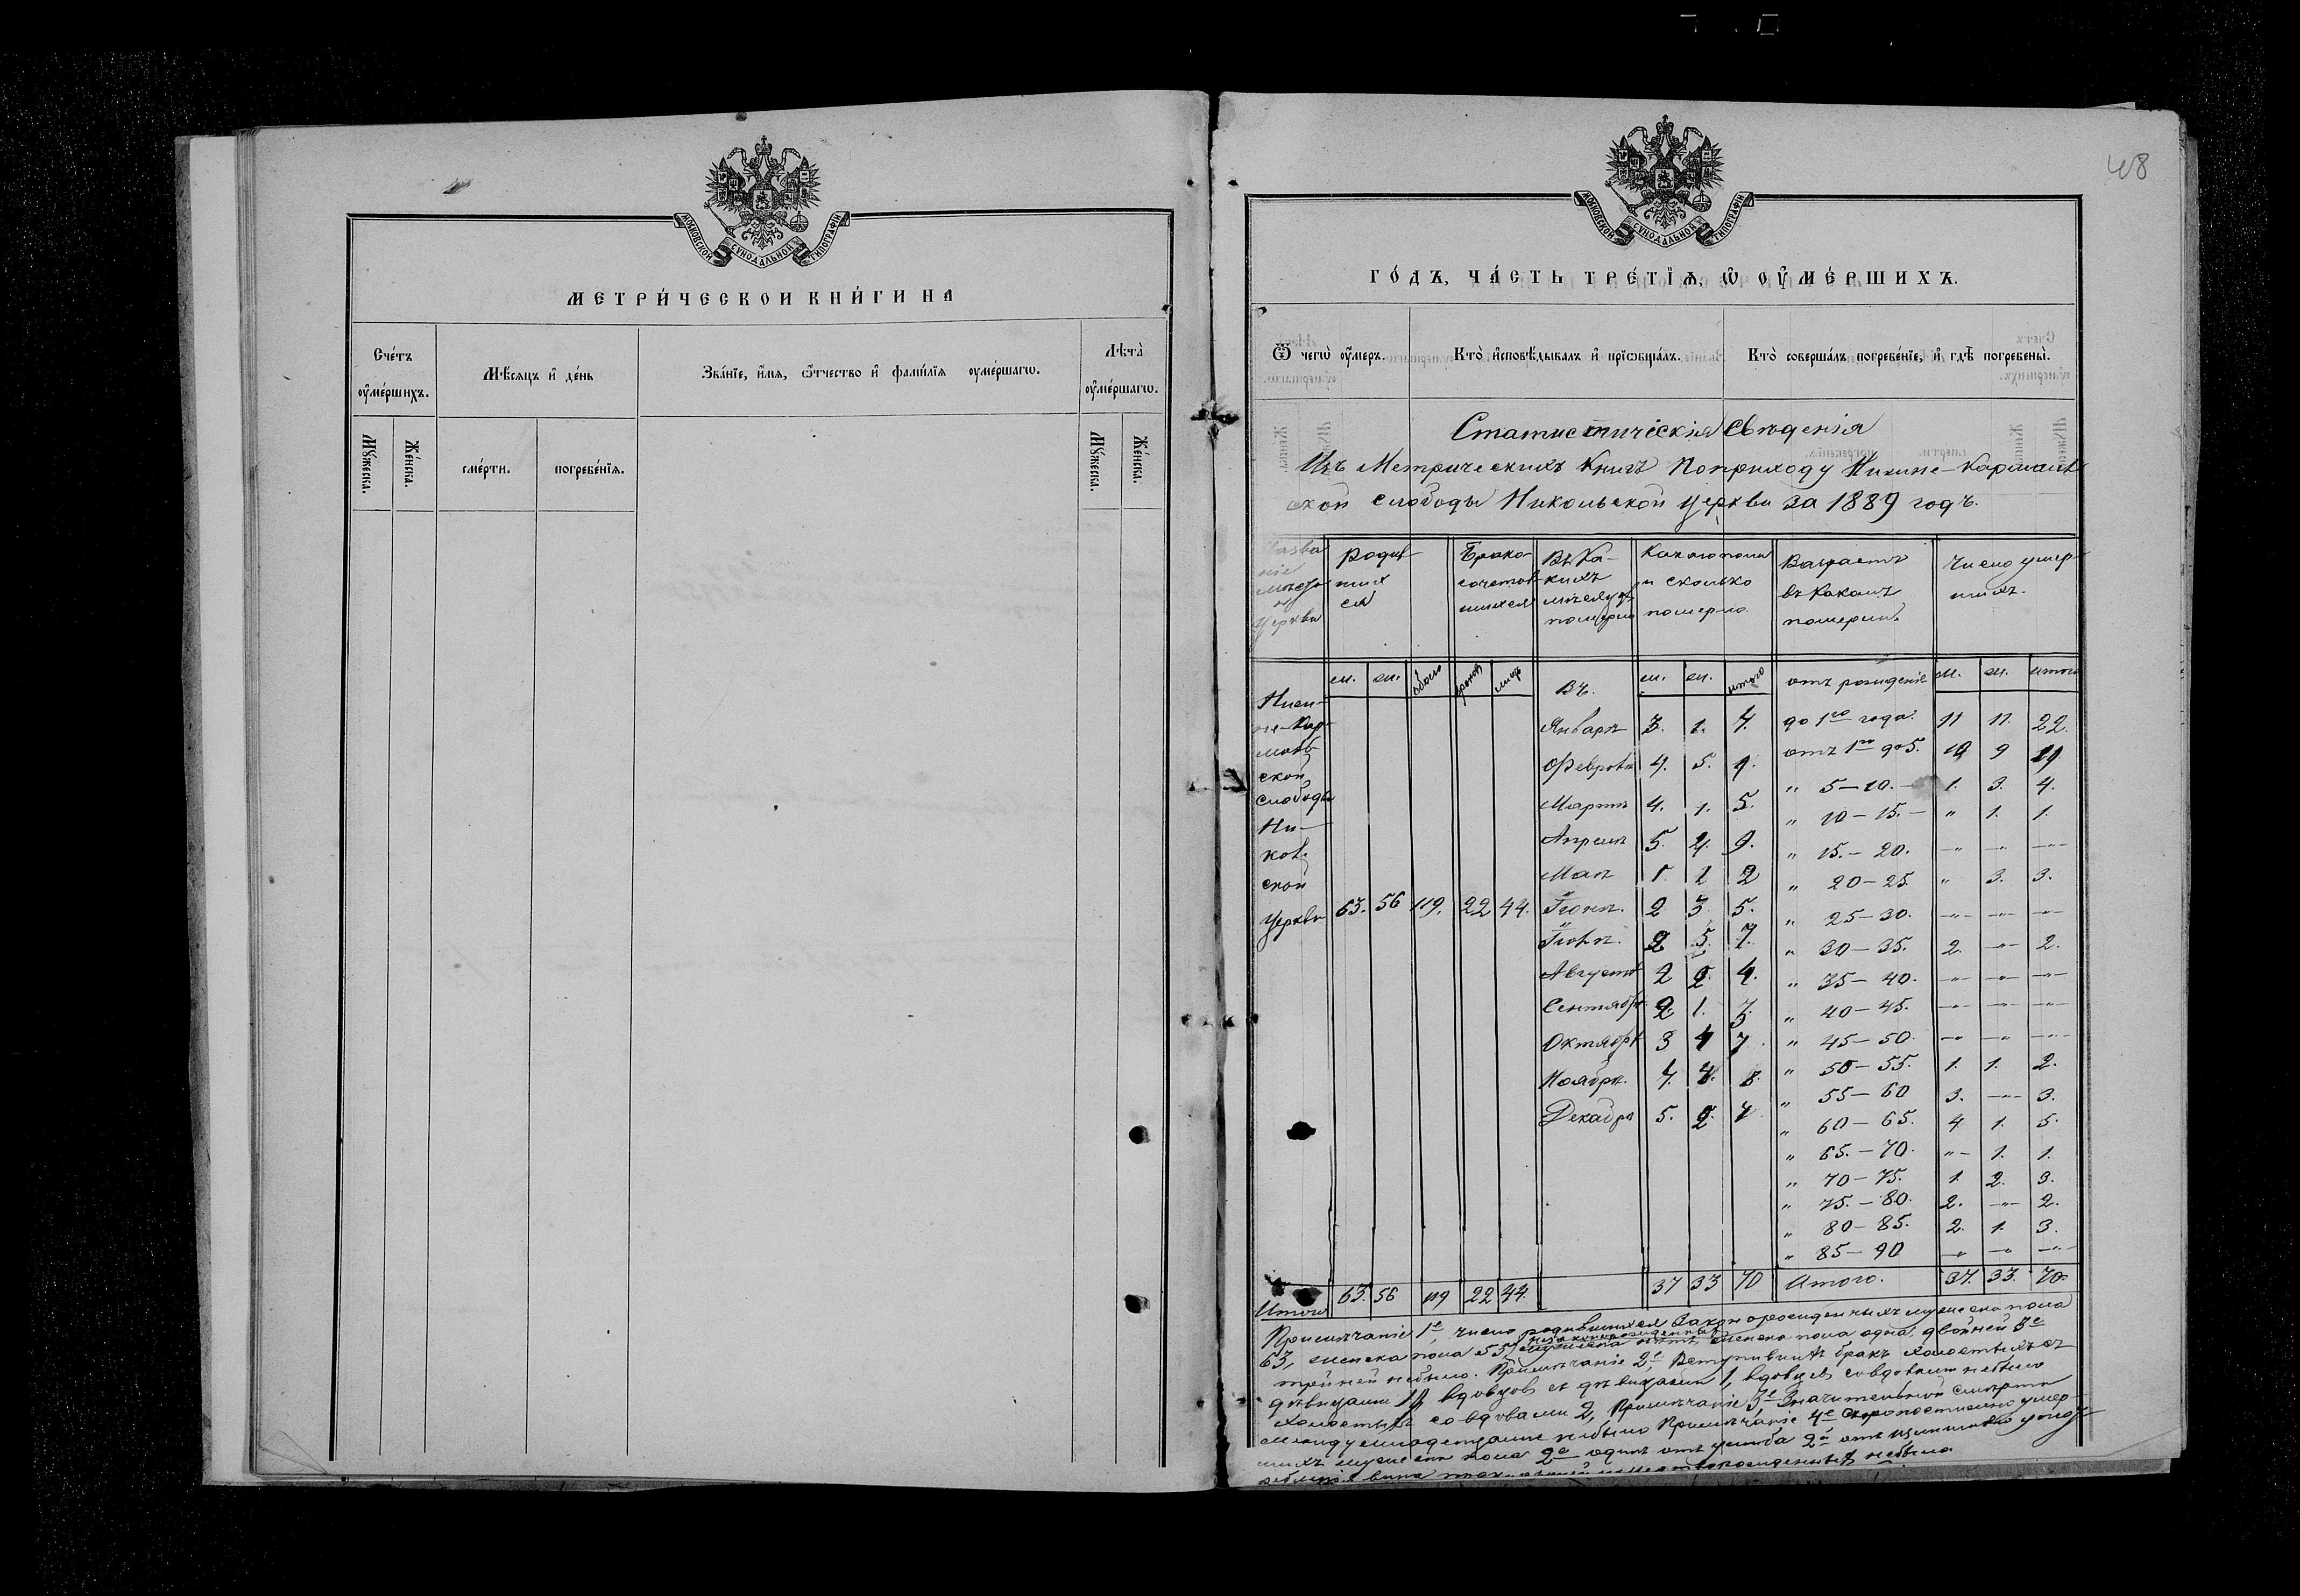 МОСКОВСКОЙ СУНОДАЛЬНОЙ ТИПОГРАФІИ
МЕТРИ́ЧЕСКОИ КНИ́ГИ НА
Сче́тъ ᲂу҆ме́ршихъ.
Мꙋ́жеска.
Же́нска.
Мѣ́сяцъ и҆ де́нь
сме́рти.
погребе́нїѧ.
Зва́нїе, и҆́мѧ, ѻ҆́тчество и҆ фами́лїѧ ᲂу҆ме́ршагѡ.
Лѣ́та ᲂу҆ме́ршагѡ.
Мꙋ́жеска.
Же́нска.
48
МОСКОВСКОЙ СУНОДАЛЬНОЙ ТИПОГРАФІИ
ГО́ДЪ, ЧА́СТЬ ТРЕ́ТЇѦ, Ѡ҆ ОУ҆МЕ́РШИХЪ.
Ѿ чегѡ̀ ᲂу҆́меръ.
Кто̀ и҆сповѣ́дывалъ и҆ прїѡбща́лъ.
Кто̀ соверша́лъ погребе́нїе, и҆ гдѣ̀ погребены̀.
Статистическія Свѣденія
Изъ Метрическихъ Книгъ по приходу Нижне-Кармал
ской слободы Никольской церкви за 1889 годъ.
Названіе мѣста и церкви
Родив шихся
Брако сочетав шихся
Въ Ка-кихъ мѣсяцахъ померло
Какого пола и сколько померло
Возрастъ въ какомъ померли.
Число умер шихъ.
м. ж. обоего браковъ лицъ Въ. м. ж. итого отъ рожденія м. ж. итого
Ниж-
не-Кар-
маль
ской
слободы
Ни-
коль
ской
Церкви 63. 56 119. 22 44.
Январѣ 3. 1. 4. до 1го года. 11 11. 22.
Февралѣ 4. 5. 9. отъ 1го до 5. 10 9 19
Мартѣ 4. 1. 5. " 5-10. 1. 3. 4.
Апрелѣ 5. 4. 9. " 10-15. " 1. 1.
Маѣ 1 1 2 " 15.-20. -"- -"- -"-
Іюнѣ. 2 3 5. " 20-25. " 3. 3.
Іюлѣ. 2 5. 7. " 25-30. -"- -"- -"-
Августѣ 2 2. 4. " 30-35. 2. -"- 2.
Сентябрѣ 2. 1. 3. " 35-40. -"- -"- -"-
Октябрѣ 3 4 7. " 40-45. -"- -"- -"-
Ноябрѣ. 4. 4. 8. " 45-50. -"- -"- -"-
Декабрѣ 5. 2. 7. " 50-55. 1. 1. 2.
" 55-60 3. -"- 3.
" 60-65. 4 1. 5.
" 65.-70. "- 1. 1.
" 70-75. 1. 2. 3.
" 75.-80. 2. -"- 2.
" 80-85. 2. 1. 3.
" 85-90 -"- -"- -"-
Итого 63. 56 119 22 44. 37 33 70 Итого. 37. 33. 70.
Примѣчаніе 1е, число родившихся законорожденныхъ мужеска пола
63, женска пола 55, незаконорожденныхъ мужеска нѣтъ, женска пола одна, двойней 3е
тройней небыло. Примѣчаніе 2е, Вступившихъ бракъ холостыхъ съ
дѣвицами вдовцовъ съ дѣвицами 1, вдовцев со вдовами небыло
холостыхъ со вдовами 2, Примѣчаніе 3е Значительной смерти
между младенцами небыло Примѣчаніе 4е Скоропостижно умер-
шихъ мужеска пола 2е одинъ отъ 2й отъ излишняго употр
ебленія вина небыло